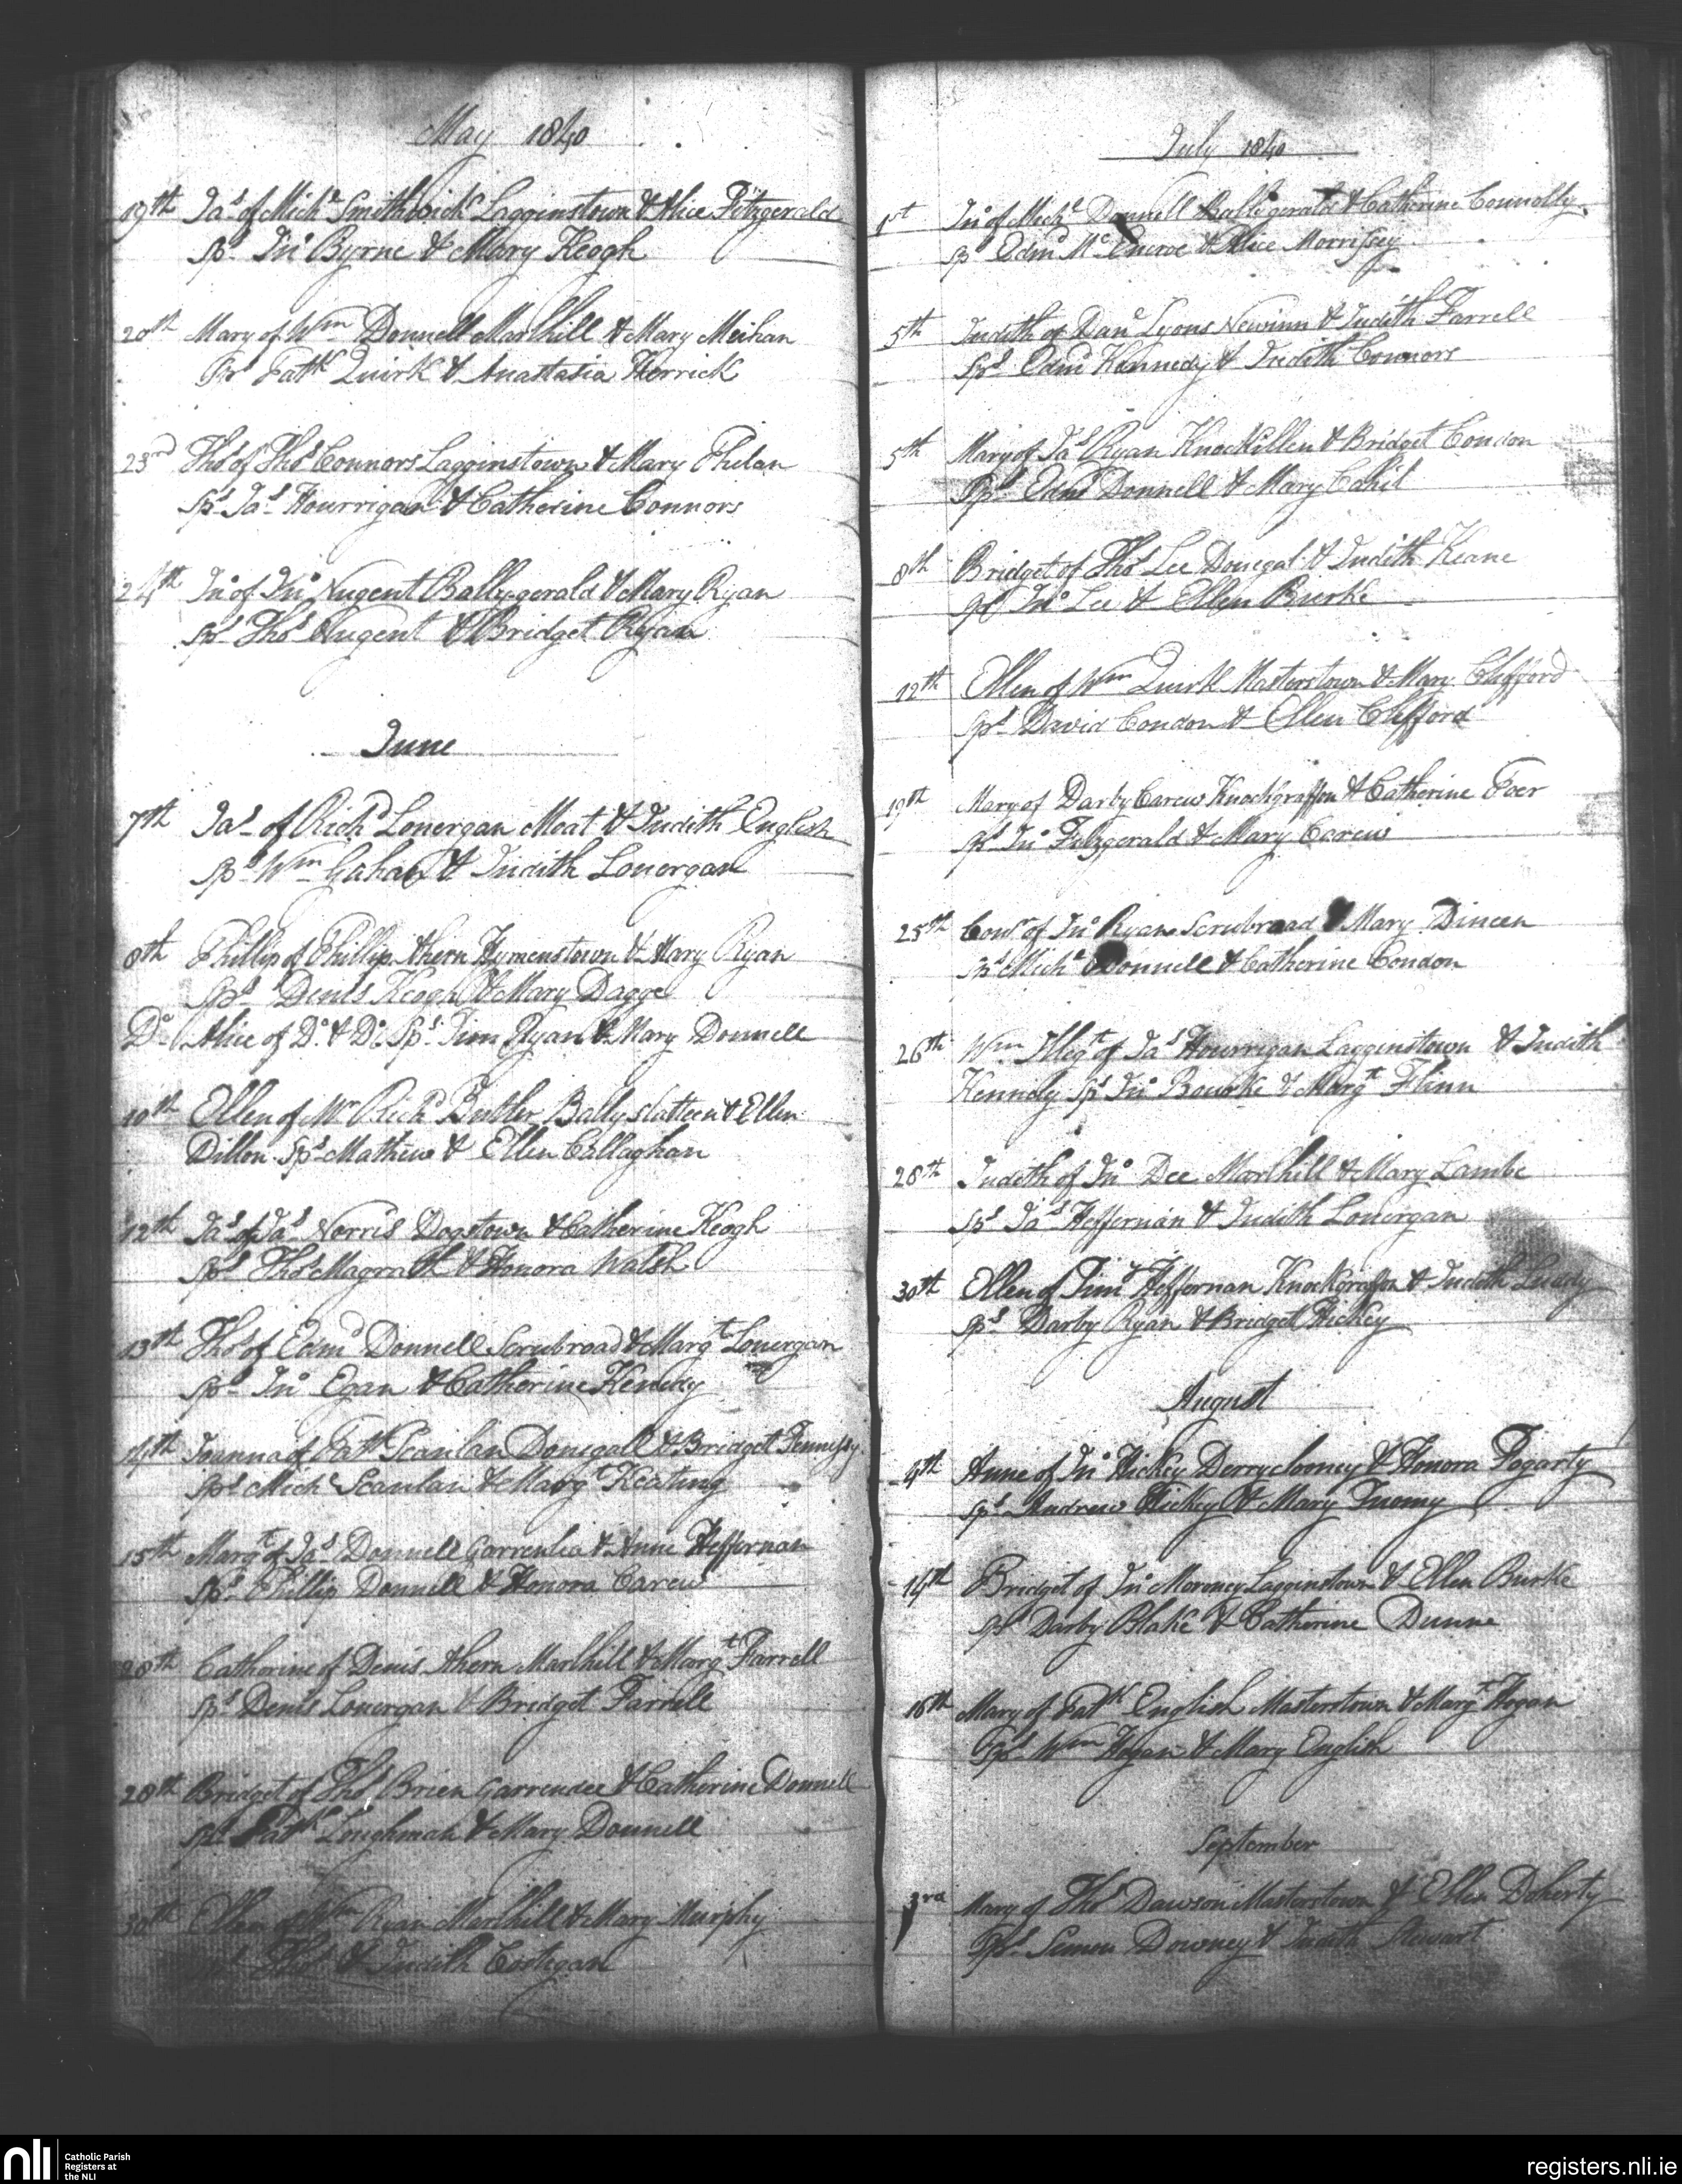 May 1840
19th Jas of Michl Smithwick Lagginstown & Alice Fitzgerald
Sps Jno Byrne & Mary Keogh
20th Mary of Wm Donnell Marlhill & Mary Meihan
Sps Patk Quirk & Anastatia Herrick
23rd Thos of Thos Connors Lagginstown & Mary Phelan
Sps Jas Hourrigan & Catherine Connors
24th Jno of Jno Nugent Ballygerald & Mary Ryan
Sps Thos Nugent & Bridget Ryan
June
7th Jas of Richd Lonergan Moat & Judith English
Sps Wm Gahan & Judith Lonergan
8th Phillip of Phillip Ahern Hymenstown & Mary Ryan
Sps Denis Keogh & Mary Dagge
Do Alice of Do & Do Sps Tim Ryan & Mary Donnell
10th Ellen of Mr Richd Butler Ballyslatteen & Ellen
Dillon Sps Mathew & Ellen Callaghan
12th Jas of Jas Norris Dogstown & Catherine Keogh
Sps Thos Magrath & Honora Walsh
13th Thos of Edmd Donnell Scrubroad & Margt Lonergan
Sps Jno Egan & Catherine Kenedy
14th Joanna of Patk Scanlan Donegall & Bridget Fennessy
Sps Michl Scanlan & Margt Keating
15th Margt of Jas Donnell Garrenlea & Anne Heffernan
Sps Phillip Donnell & Honora Carew
28th Catherine of Denis Ahern Marlhill & Margt Farrell
Sps Denis Lonergan & Bridget Farrell
28th Bridget of Thos Brien Garrendee & Catherine Donnell
Sps Patk Loughman & Mary Donnell
30th Ellen of Wm Ryan Marlhill & Mary Murphy
Sps Thos & Judith Costigan
July 1840
1st Jno of Michl Donnell Ballygerald & Catherine Connolly
Sps Edmd McEncroe & Alice Morrissey
5th Judith of Danl Lyons Newinn & Judith Farrell
Sps Edmd Kennedy & Judith Connors
5th Mary of Jas Ryan Knockillen & Bridget Condon
Sps Edmd Donnell & Mary Cahil
8th Bridget of Thos Lee Donegal & Judith Keane
Sps Jno Lee & Ellen Burke
12th Ellen of Wm Quirk Masterstown & Mary Clifford
Sps David Condon & Ellen Clifford
19th Mary of Darby Carew Knockgraffon & Catherine Foer
Sps Jno Fitzgerald & Mary Carew
25th Conr of Jno Ryan Scrubroad & Mary Dineen
Sps Michl Donnell & Catherine Condon
26th Wm Illegt of Jas Hourrigan Lagginstown & Judith
Kennedy Sps Jno Bourke & Margt Flinn
28th Judith of Jno Dee Marlhill & Mary Lambe
Sps Jas Heffernan & Judith Lonergan
30th Ellen of Timy Heffernan Knockgraffon & Judith Leady
Sps Darby Ryan & Bridget Hickey
August
4th Anne of Jno Hickey Derryclooney & Honora Fogarty
Sps Andrew Hickey & Mary Tuomy
14th Bridget of Jno Moroney Lagginstown & Ellen Burke
Sps Darby Blake & Catherine Dunne
16th Mary of Patk English Masterstown & Margt Hogan
Sps Wm Hogan & Mary English
September
3rd Mary of Thos Dawson Masterstown & Ellen Doherty
Sps Semon Downey & Judith Stewart
nli
Catholic Parish
Registers at
the NLI
registers.nli.ie